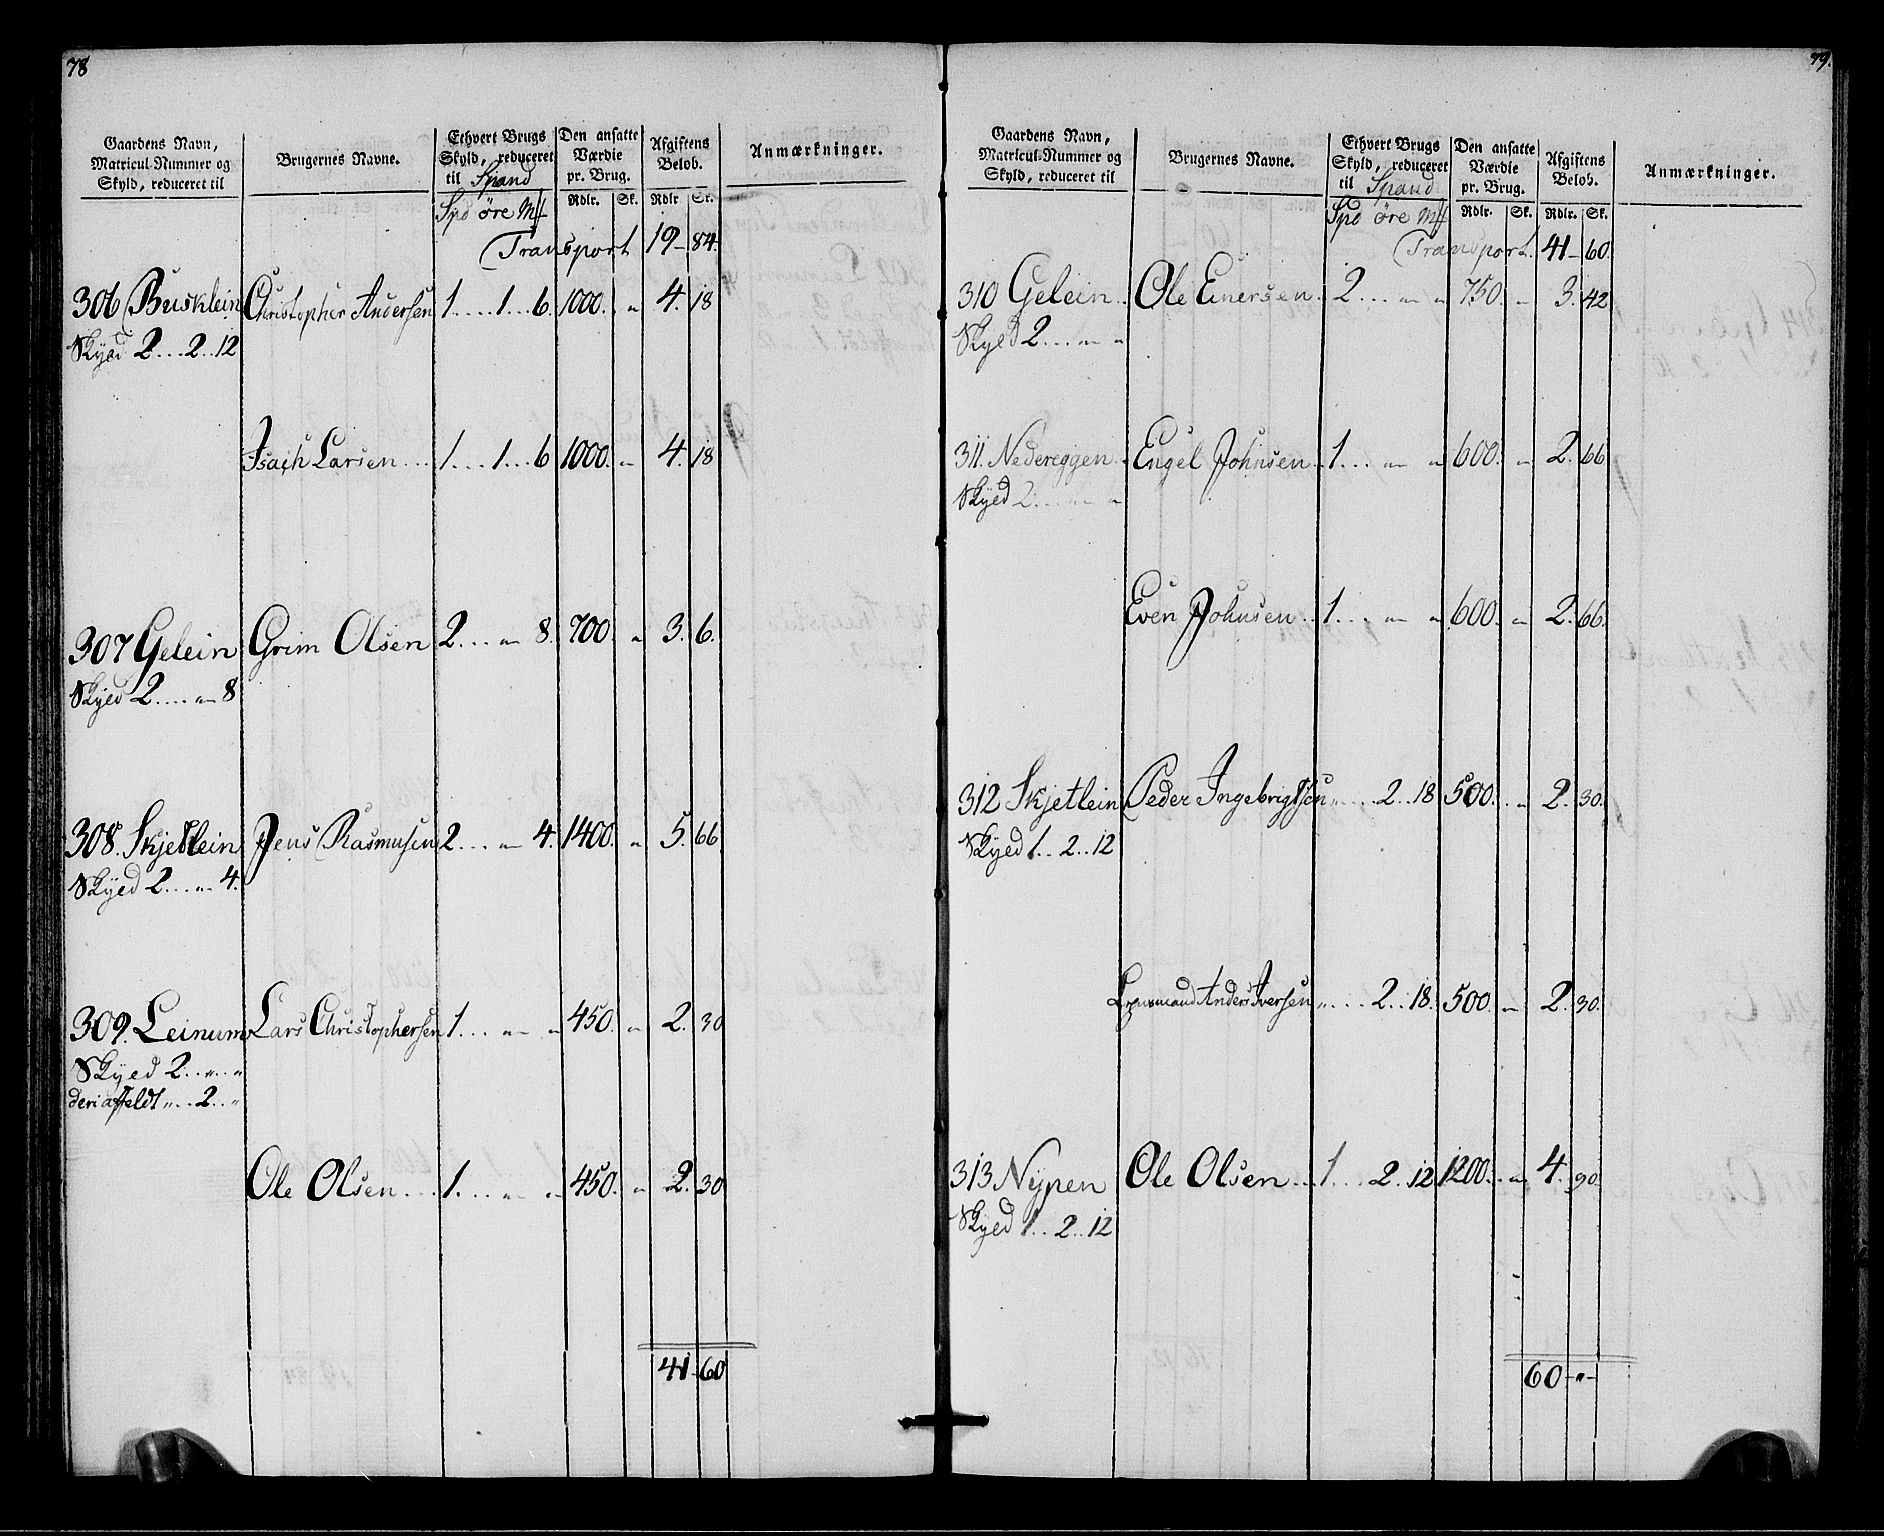 78
Gaardens Navn, Matricul-Nummer og Skyld, reduceret til
Brugernes Navne.
Ethvert Brugs Skyld, reduceret til Spand
Den ansatte Værdie pr. Brug.
Afgiftens Beløb.
Anmærkninger.
Spd øre Mk
Rdlr. Sk. Rdlr Sk.
Transport 19 - 84.
306 Busklein Christopher Andersen 1....1...6. 1000. " 4. 18
Skyld 2...2..12
Isach Larsen... 1....1...6 1000. " 4. 18
307 Gelein Grim Olsen 2... " 8. 700. " 3. 6.
Skyld 2.... " 8
308. Skjetlein Jens Rasmusen 2... " 4. 1400. " 5. 66.
Skyed 2... " 4.
309. Leinum Lars Christophersen 1... " " 450. " 2. 30
Skyed 2.. " .. "
deri affeldt " .. 2.. "
Ole Olsen... 1.... " .. 450. " 2. 30
41 - 60
79.
Gaardens Navn, Matricul-Nummer og Skyld, reduceret til
Brugernes Navne.
Ethvert Brugs Skyld, reduceret til Spand
Den ansatte Værdie pr. Brug.
Afgiftens Beløb.
Anmærkninger.
Spd øre Mk
Rdlr. Sk. Rdlr. Sk.
Transport. 41 - 60.
310 Gelein.. Ole Einersen.. 2... " " 750. " 3. 42
Skyld 2... " "
311. Nedereggen.. Engel Johnsen.. 1... " " 600. " 2. 66
Skyed 2... " "
Even Johnsen.. 1... " " 600. " 2. 66.
312 Skjetlein Peder Ingebrigtsen " ....2..18 500. " 2. 30.
Skyed 1..2..12
Lensmand Anders Iversen " ....2..18. 500. " 2. 30.
313 Nypen Ole Olsen... 1....2..12 1200. " 4. 90.
Skyed 1..2..12
60 - " -